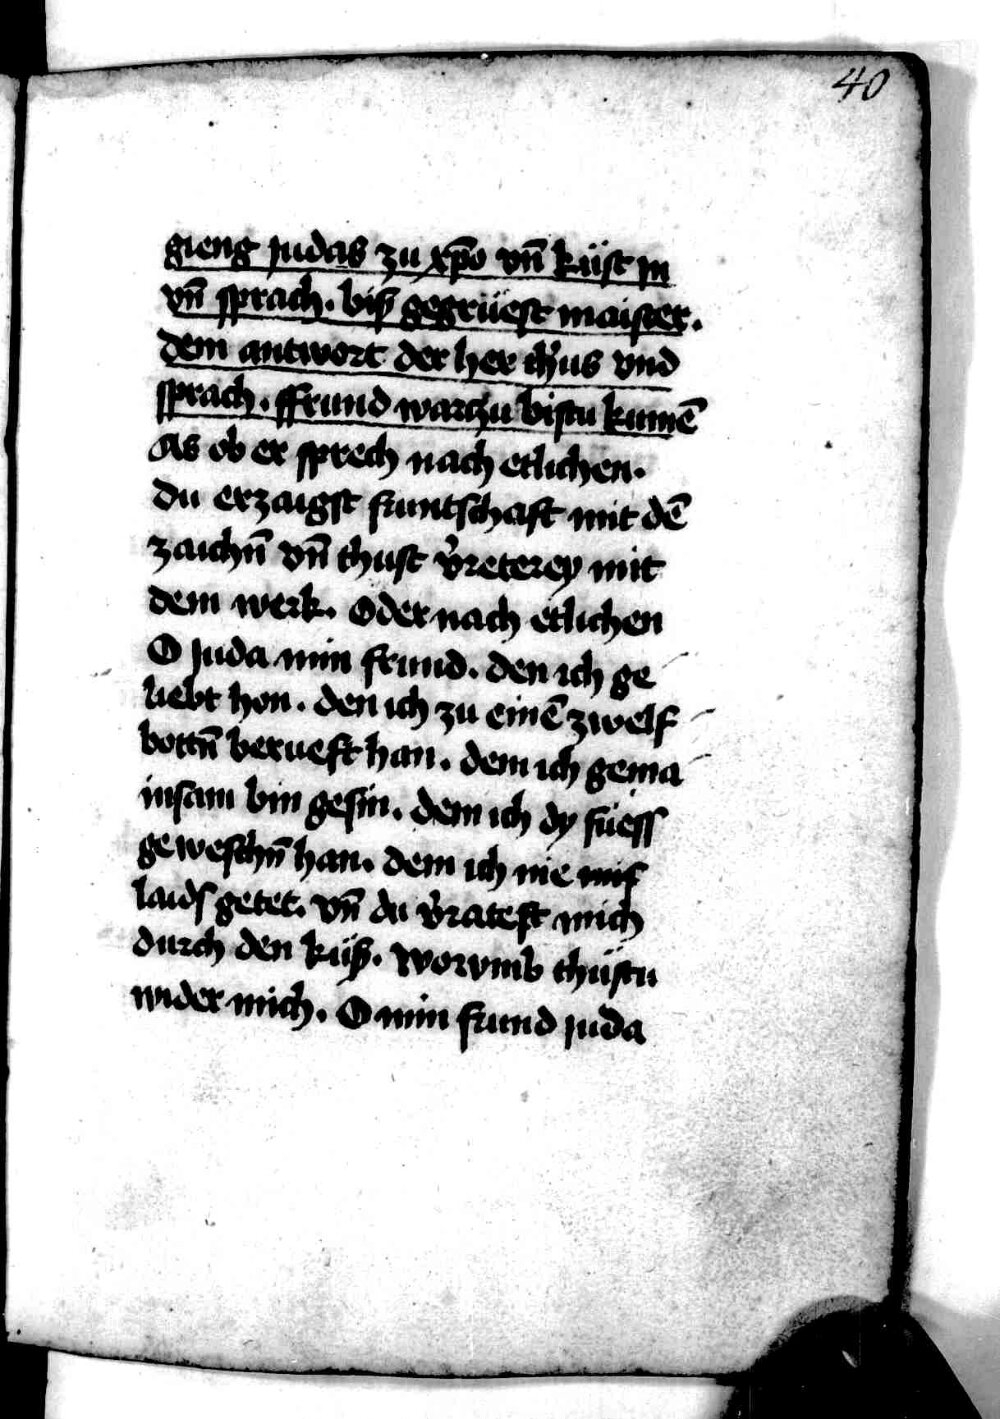 40
gieng judas zu xp̄o vn̄ küst jn
vn̄ sprach. biß gegrüest maister.
dem antwort der her ih̄us vnd
sprach. ffrund warzu bistu kumē
As ob er sprech nach etlichen.
du erzaigst fruntschaft mit dē
zaichn̄ vn̄ thust v̉reterey mit
dem werk. Oder nach etlichen
O juda min frund. den ich ge
liebt hon. den ich zu einē zwelf
bottn̄ berueft han. dem ich gema
insam bin gesin. dem ich dy füess
geweschn̄ han. dem ich nie
laids getet. vn̄ du v̉ratest mich
durch den küß. worvmb thüstu
wider mich. O min frund juda